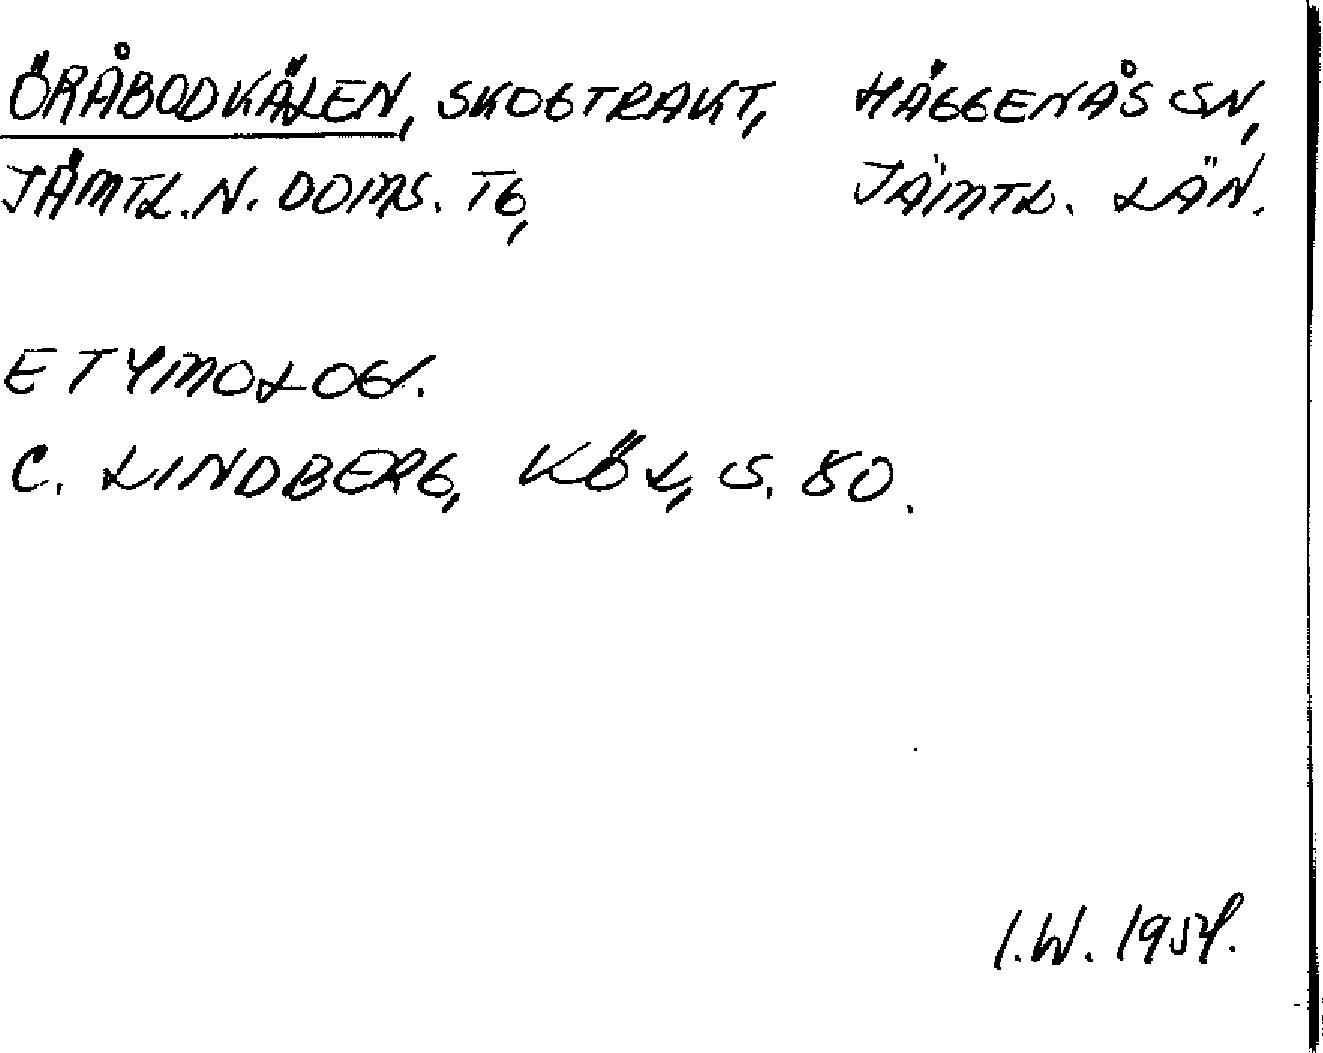 ÖRÅBODKÄLEN, SKOGTRAKT, HÄGGENÅS SN,
JÄMTL. N. DOMS. TG, JÄMTL. LÄN.
ETYMOLOGI.
C. LINDBERG, KÖL, S. 50.
I.W. 1954.